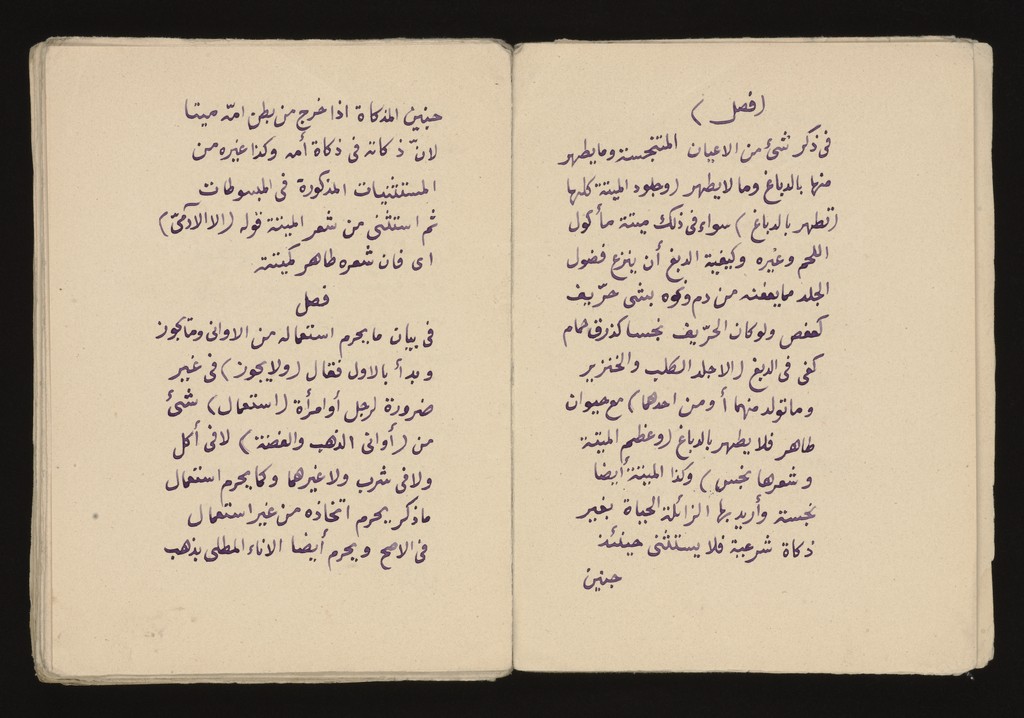 (فصل)
فى ذكر شئ من الاعيان المتنجسة وما يطهر
منها بالدباغ وما لا يطهر (وجلود الميتة كلها
تطهر بالدباغ) سواء فى ذلك ميتة مأكول
اللحم وغيره وكيفية الدبغ أن ينزع فضول
الجلد مما يعفنه من دم ونحوه بشئ حرّيف
كعفص ولو كان الحرّيف نجسا كذرق حمام
كفى فى الدبغ (الا جلد الكلب والخنزير
وما تولد منهما أو من احدهما) مع حيوان
طاهر فلا يطهر بالدباغ (وعظم الميتة
وشعرها نجس) وكذا الميتة أيضا
نجسة وأريد بها الزائلة الحياة بغير
ذكاة شرعية فلا يستثنى حينئذ
جنين
جنين المذكاة اذا خرج من بطن امّه ميتا
لانّ ذكاته فى ذكاة أمه وكذا غيره من
المستثنيات المذكورة فى المبسوطات
ثم استثنى من شعر الميتة قوله (الا الآدمىّ)
اى فان شعره طاهر كميتته
فصل
فى بيان ما يحرم استعماله من الاوانى وما يجوز
وبدأ بالاول فقال (ولا يجوز) فى غير
ضرورة لرجل أو امرأة (استعمال) شئ
من (أوانى الذهب والفضة) لا فى أكل
ولا فى شرب ولا غيرهما وكما يحرم استعمال
ما ذكر يحرم اتخاذه من غير استعمال
فى الاصح ويحرم أيضا الاناء المطلى بذهب